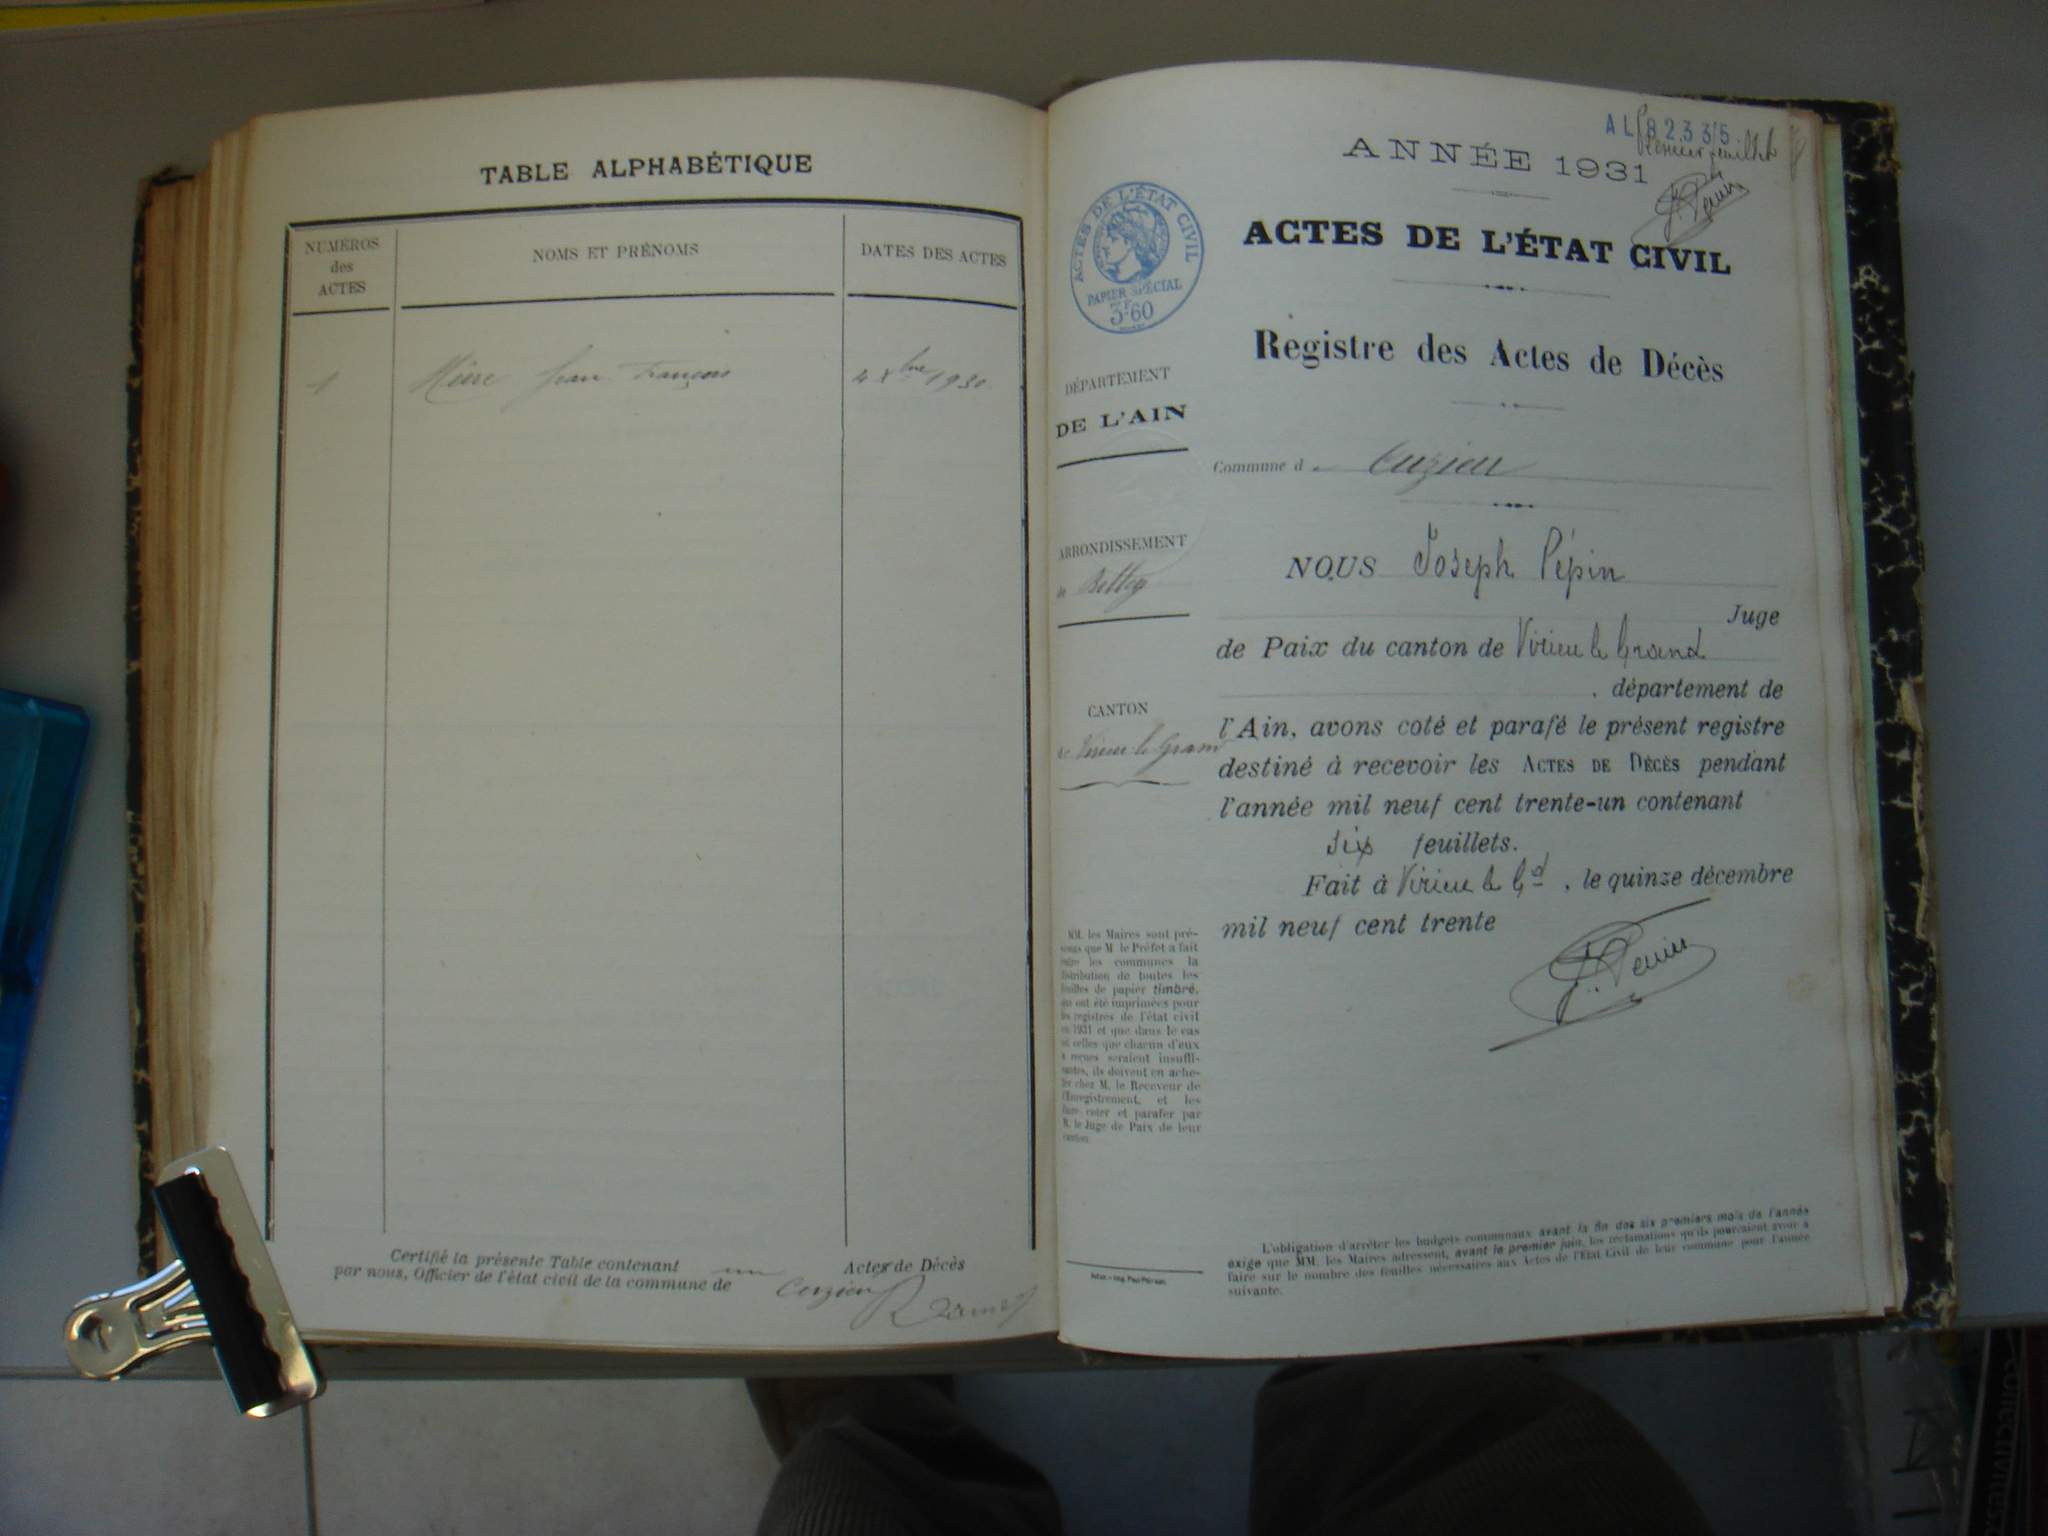 TABLE ALPHABÉTIQUE
NUMÉROS
des
ACTES
NOMS ET PRÉNOMS
DATES DES ACTES
1
Jean François
4 Xbre 1930
Certifié la présente Table contenant un Actes de Décès
par nous, Officier de l'état civil de la commune de Cuzieu
AL 82335
Premier feuillet
ANNÉE 1931
ACTES DE L'ÉTAT CIVIL
ACTES DE L'ÉTAT CIVIL
PAPIER SPÉCIAL
3F60
Registre des Actes de Décès
DÉPARTEMENT
DE L'AIN
Commune de Cuzieu
ARRONDISSEMENT
de Belley
CANTON
de Virieu le Grand
NOUS Joseph Pépin
Juge
de Paix du canton de Virieu le Grand
, département de
l'Ain, avons coté et parafé le présent registre
destiné à recevoir les ACTES DE DÉCÈS pendant
l'année mil neuf cent trente-un contenant
six feuillets.
Fait à Virieu le Gd, le quinze décembre
mil neuf cent trente
J. Pépin
MM. les Maires sont pré-
venus que M. le Préfet a fait
entre les communes la
distribution de toutes les
feuilles de papier timbré,
qui ont été imprimées pour
les registres de l'état civil
en 1931 et que dans le cas
où celles que chacun d'eux
a reçues seraient insuffi-
santes, ils doivent en ache-
ter chez M. le Receveur de
l'Enregistrement, et les
faire coter et parafer par
M. le Juge de Paix de leur
canton.
L'obligation d'arrêter les budgets communaux avant la fin des six premiers mois de l'année
exige que MM. les Maires adressent, avant le premier juin, les réclamations qu'ils pourraient avoir à
faire sur le nombre des feuilles nécessaires aux Actes de l'Etat Civil de leur commune pour l'année
suivante.